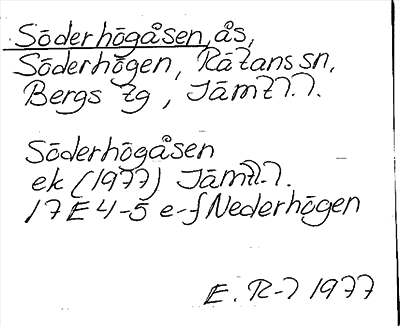 Söderhögåsen, ås,
Söderhögen, Rätans sn,
Bergs tg, Jämtl.
Söderhögåsen
ek (1977) Jämtl.
17E 4-5 e-f Nederhögen
E. R-7 1977